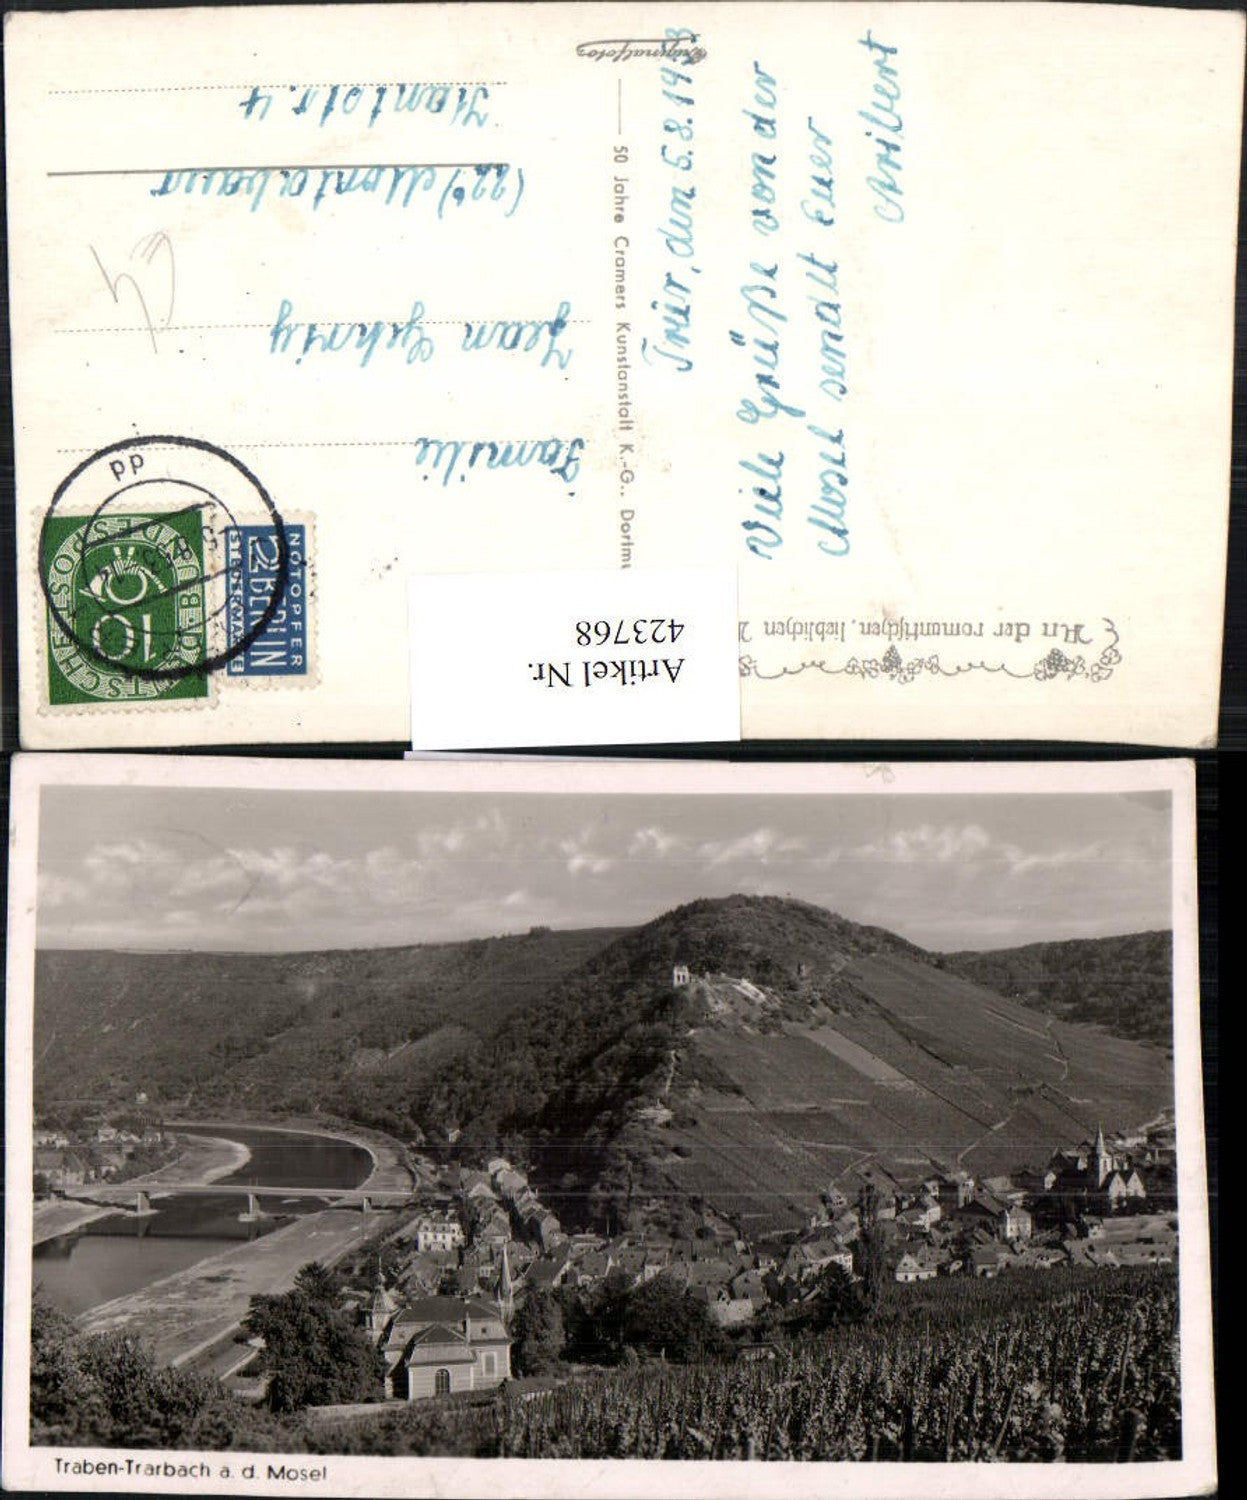 An der romantischen, lieblichen
Trier, den 5.8.19
Viele Grüße von der
Mosel sendet Euer
Aribert
Originalfotos
50 Jahre Cramers Kunstanstalt K.-G., Dortmu
Familie
Jean Gehrig
(22b) Montabaur
4
DEUTSCHE BUNDESPOST
10
NOTOPFER
2 BERLIN
STEUERMARKE
pp
Artikel Nr.
423768
Traben-Trarbach a. d. Mosel